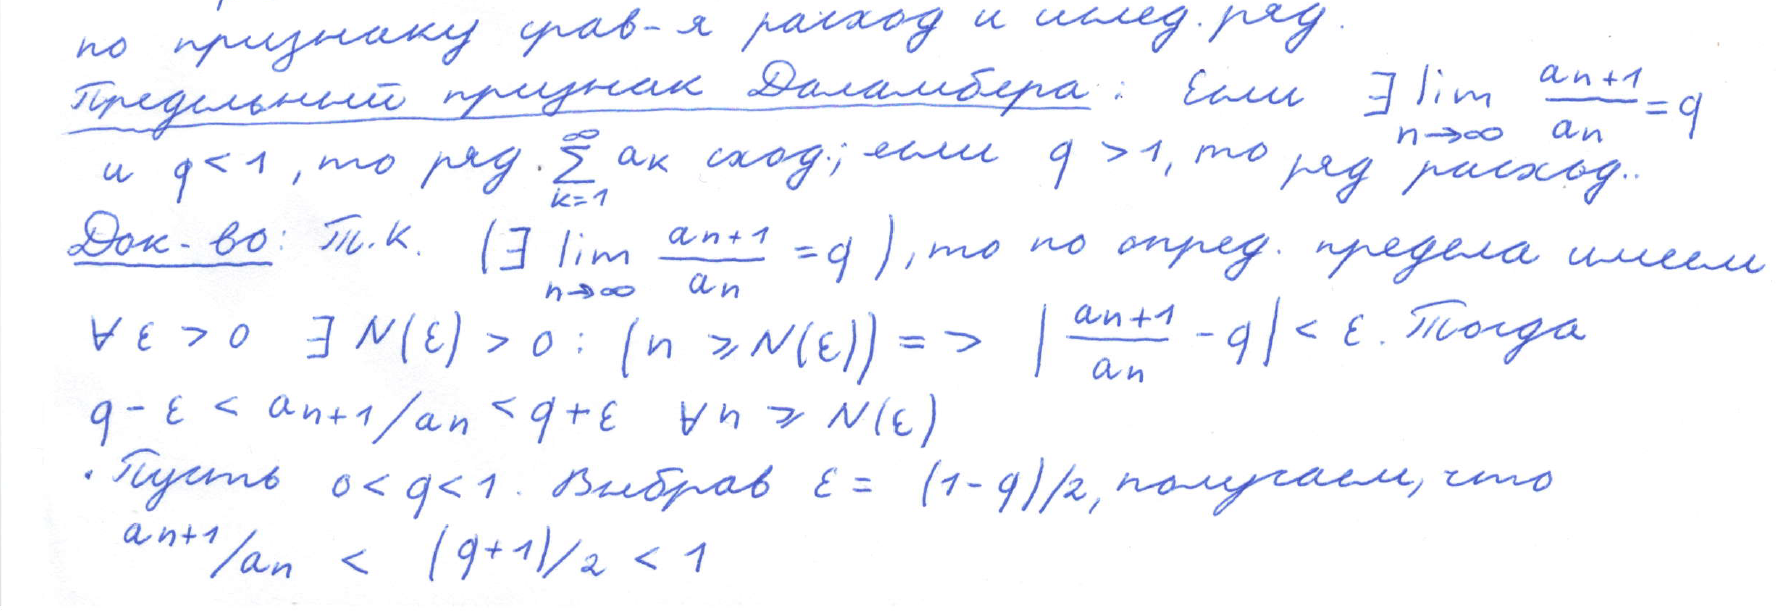 по признаку срав-я расход и исслед. ряд.
Предельный признак Даламбера: Если ∃ lim n→∞ an+1/an = q
и q < 1, то ряд. ∑ k=1 ∞ ak сход.; если q > 1, то ряд расход..
Док-во: Т.к. (∃ lim n→∞ an+1/an = q), то по опред. предела имеем
∀ ε > 0 ∃ N(ε) > 0 : (n ≥ N(ε)) => | an+1/an - q | < ε. Тогда
q - ε < an+1/an < q + ε ∀n ≥ N(ε)
· Пусть 0 < q < 1. Выбрав ε = (1-q)/2, получаем, что
an+1/an < (q+1)/2 < 1